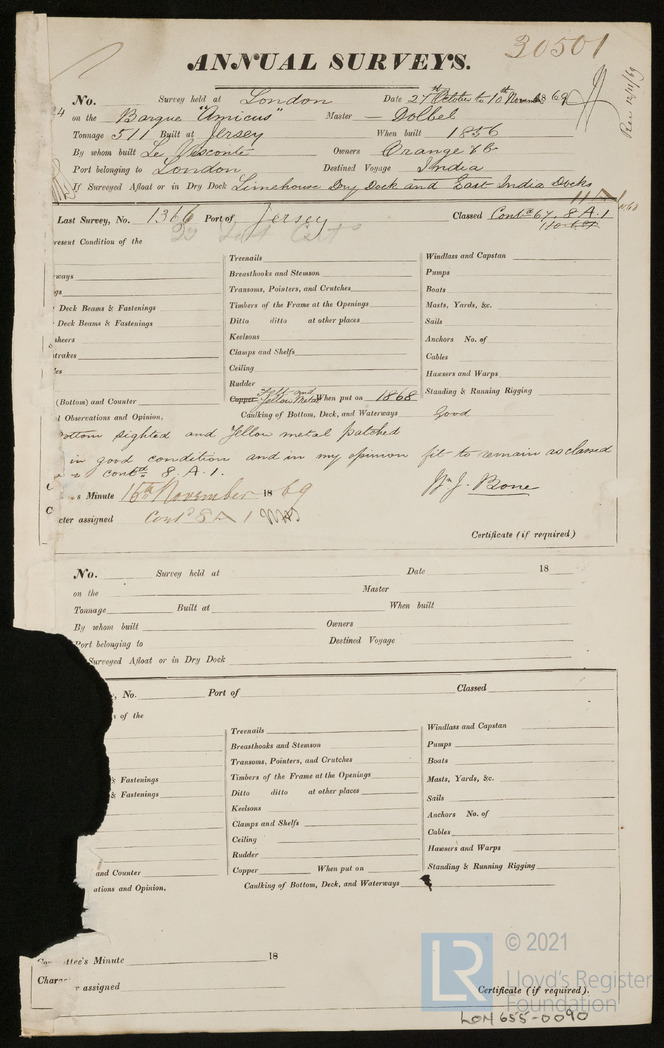 30501
ANNUAL SURVEYS.
No. Survey held at London Date 27th October to 10th November 1869
on the Barque "Amicus" Master — Dolbel
Tonnage 511 Built at Jersey When built 1856
By whom built Le Vesconte Owners Orange & Co
Port belonging to London Destined Voyage India
If Surveyed Afloat or in Dry Dock Limehouse Dry Dock and East India Docks
Last Survey, No. 1366 Port of Jersey Classed Contd 67. 8. A. 1
resent Condition of the
Treenails
Windlass and Capstan
Breasthooks and Stemson
Pumps
ways
Transoms, Pointers, and Crutches
Boats
gs
Timbers of the Frame at the Openings
Masts, Yards, &c.
Deck Beams & Fastenings
Ditto ditto at other places
Sails
Deck Beams & Fastenings
Keelsons
Anchors No. of
sheers
Clamps and Shelfs
Cables
trakes
Ceiling
Hawsers and Warps
es
Rudder
Standing & Running Rigging
(Bottom) and Counter
Copper Felt and Yellow Metal When put on 1868
l Observations and Opinion,
Caulking of Bottom, Deck, and Waterways Good
Bottom sighted and Yellow metal patched
in good condition and in my opinion fit to remain as classed
contd 8. A. 1.
Wm J. Bone
s Minute 16th November 1869
cter assigned Contd 8 A 1
Certificate (if required)
No. Survey held at Date 18
on the Master
Tonnage Built at When built
By whom built Owners
Port belonging to Destined Voyage
Surveyed Afloat or in Dry Dock
, No. Port of Classed
of the
Treenails
Windlass and Capstan
Breasthooks and Stemson
Pumps
Transoms, Pointers, and Crutches
Boats
& Fastenings
Timbers of the Frame at the Openings
Masts, Yards, &c.
& Fastenings
Ditto ditto at other places
Sails
Keelsons
Anchors No. of
Clamps and Shelfs
Cables
Ceiling
Hawsers and Warps
Rudder
Standing & Running Rigging
and Counter
Copper When put on
ations and Opinion,
Caulking of Bottom, Deck, and Waterways
ttee's Minute 18
Charac r assigned
Certificate (if required).
LR © 2021
Lloyd's Register
Foundation
LON 655-0090